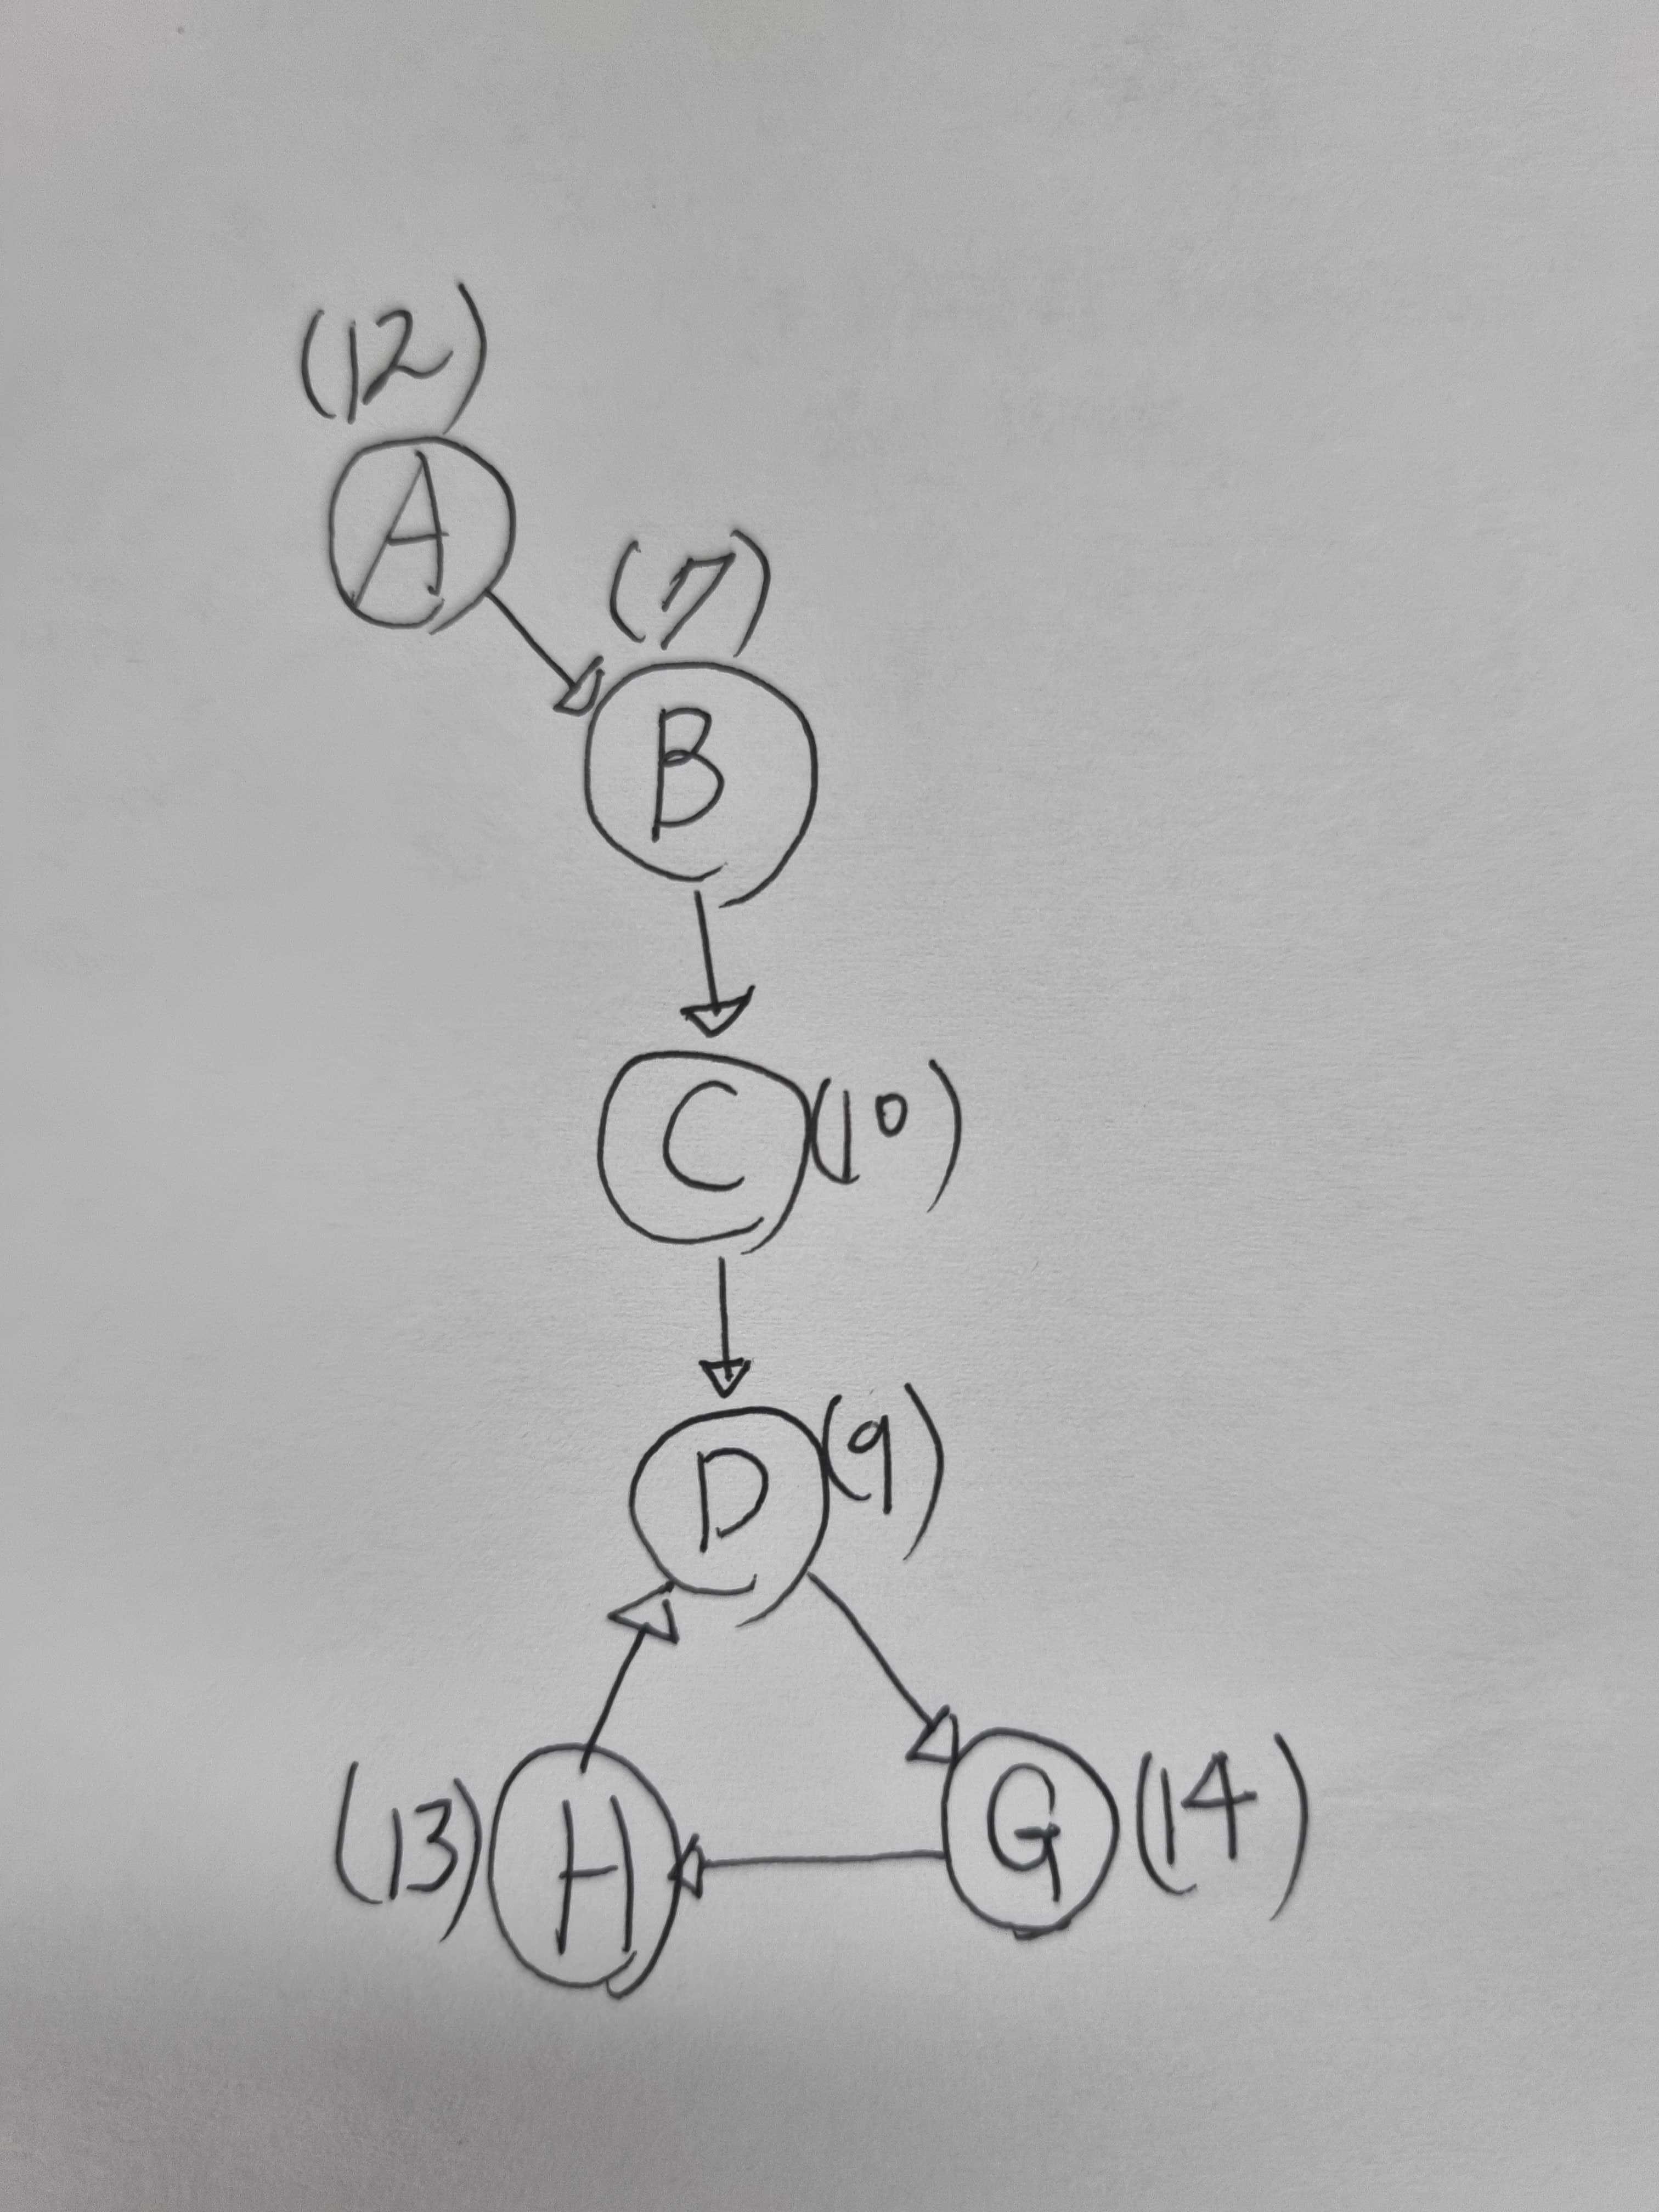 (12)
A
(7)
B
C (10)
D (9)
(13) H G (14)